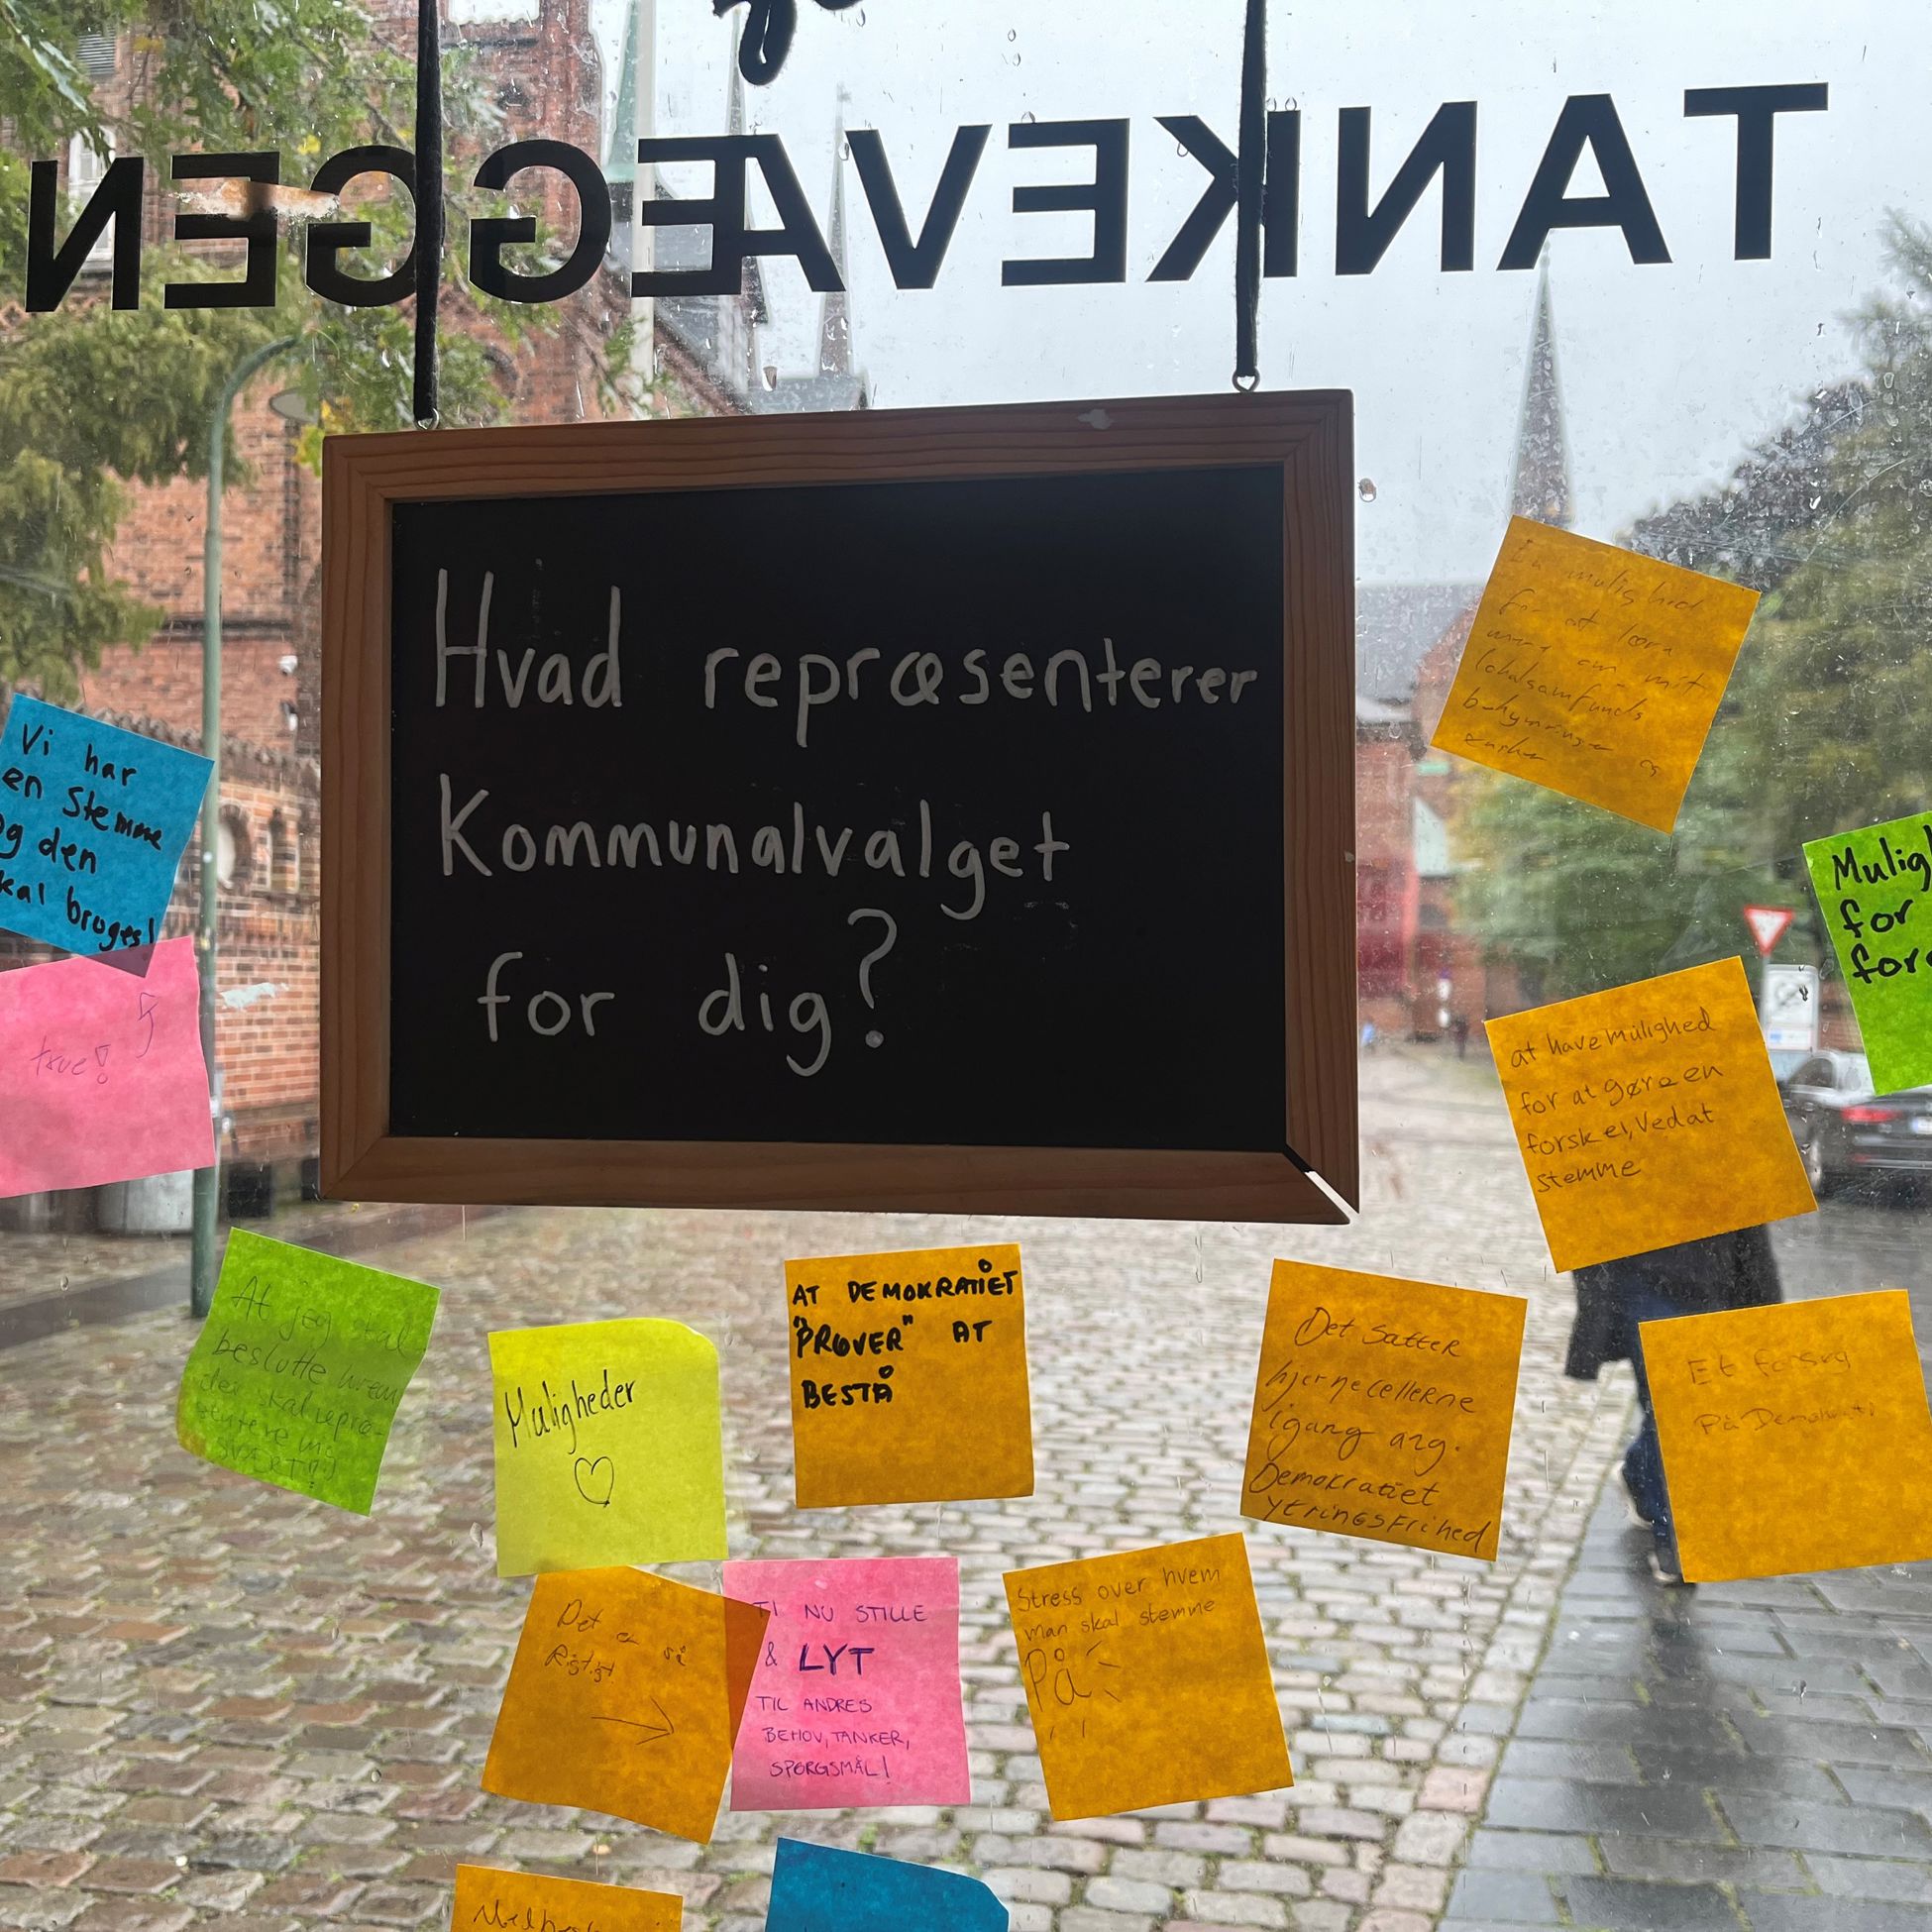 TANKEVÆGGEN
Hvad repræsenterer
Kommunalvalget
for dig?
Vi har
en stemme
og den
skal bruges!
true!
En mulighed
for at lære
mere om mit
lokalsamfunds
bekymringer og
ønsker
Mulig
for
for
at have mulighed
for at gøre en
forskel, ved at
stemme
At jeg skal
beslutte hvem
der skal repræ-
SVÆRT!
Muligheder
AT DEMOKRATIET
"PRØVER" AT
BESTÅ
Det Sætter
hjernecellerne
igang ang.
Demokratiet
Ytringsfrihed
Et forsøg
På Demokrati
Det er så
Rigtigt
TI NU STILLE
& LYT
TIL ANDRES
BEHOV, TANKER,
SPØRGSMÅL!
Stress over hvem
man skal stemme
På